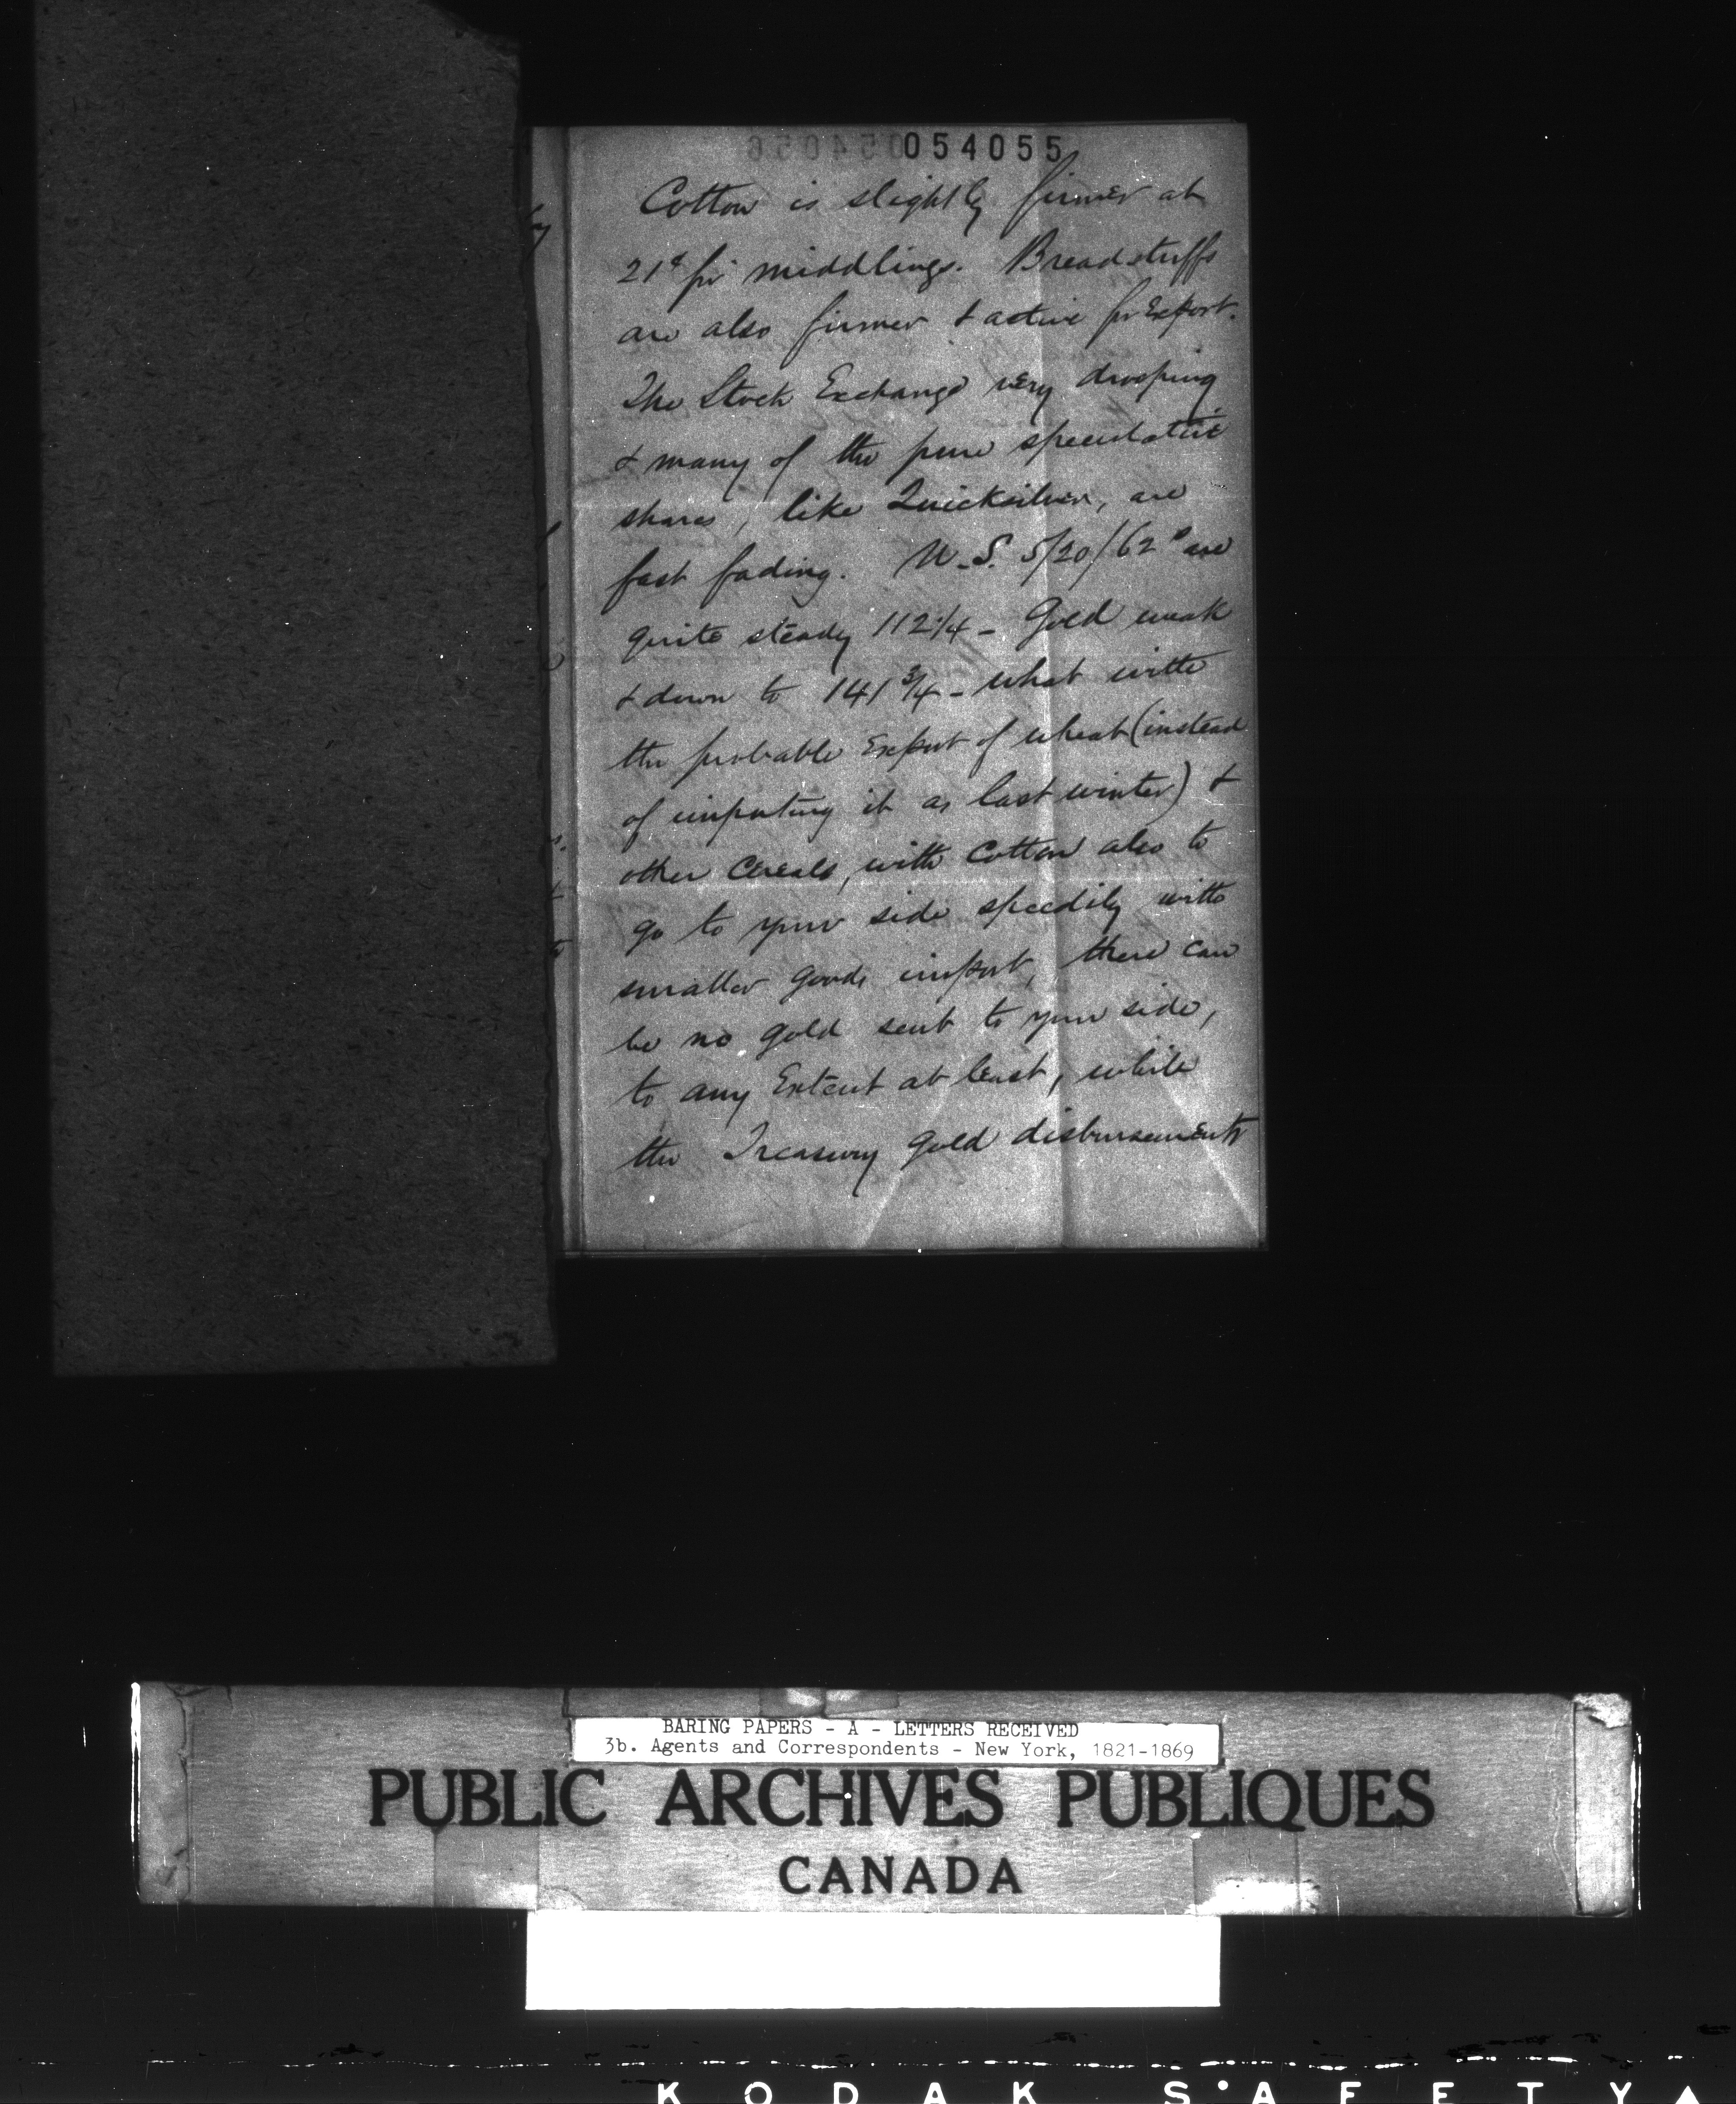 054055
Cotton is slightly firmer at
21¢ for middlings. Breadstuffs
are also firmer & active for Export.
The Stock Exchange very drooping
& many of the pure speculative
shares, like Quicksilver, are
fast fading. U.S. 5/20/62s are
quite steady 112 1/4 - Gold weak
& down to 141 3/4 - what with
the probable Export of wheat (instead
of importing it as last winter) &
other Cereals, with Cotton also to
go to your side speedily with
smaller goods import, there can
be no gold sent to your side,
to any Extent at least, while
the Treasury gold disbursements
BARING PAPERS - A - LETTERS RECEIVED
3b. Agents and Correspondents - New York, 1821-1869
PUBLIC ARCHIVES PUBLIQUES
CANADA
KODAK SAFETY